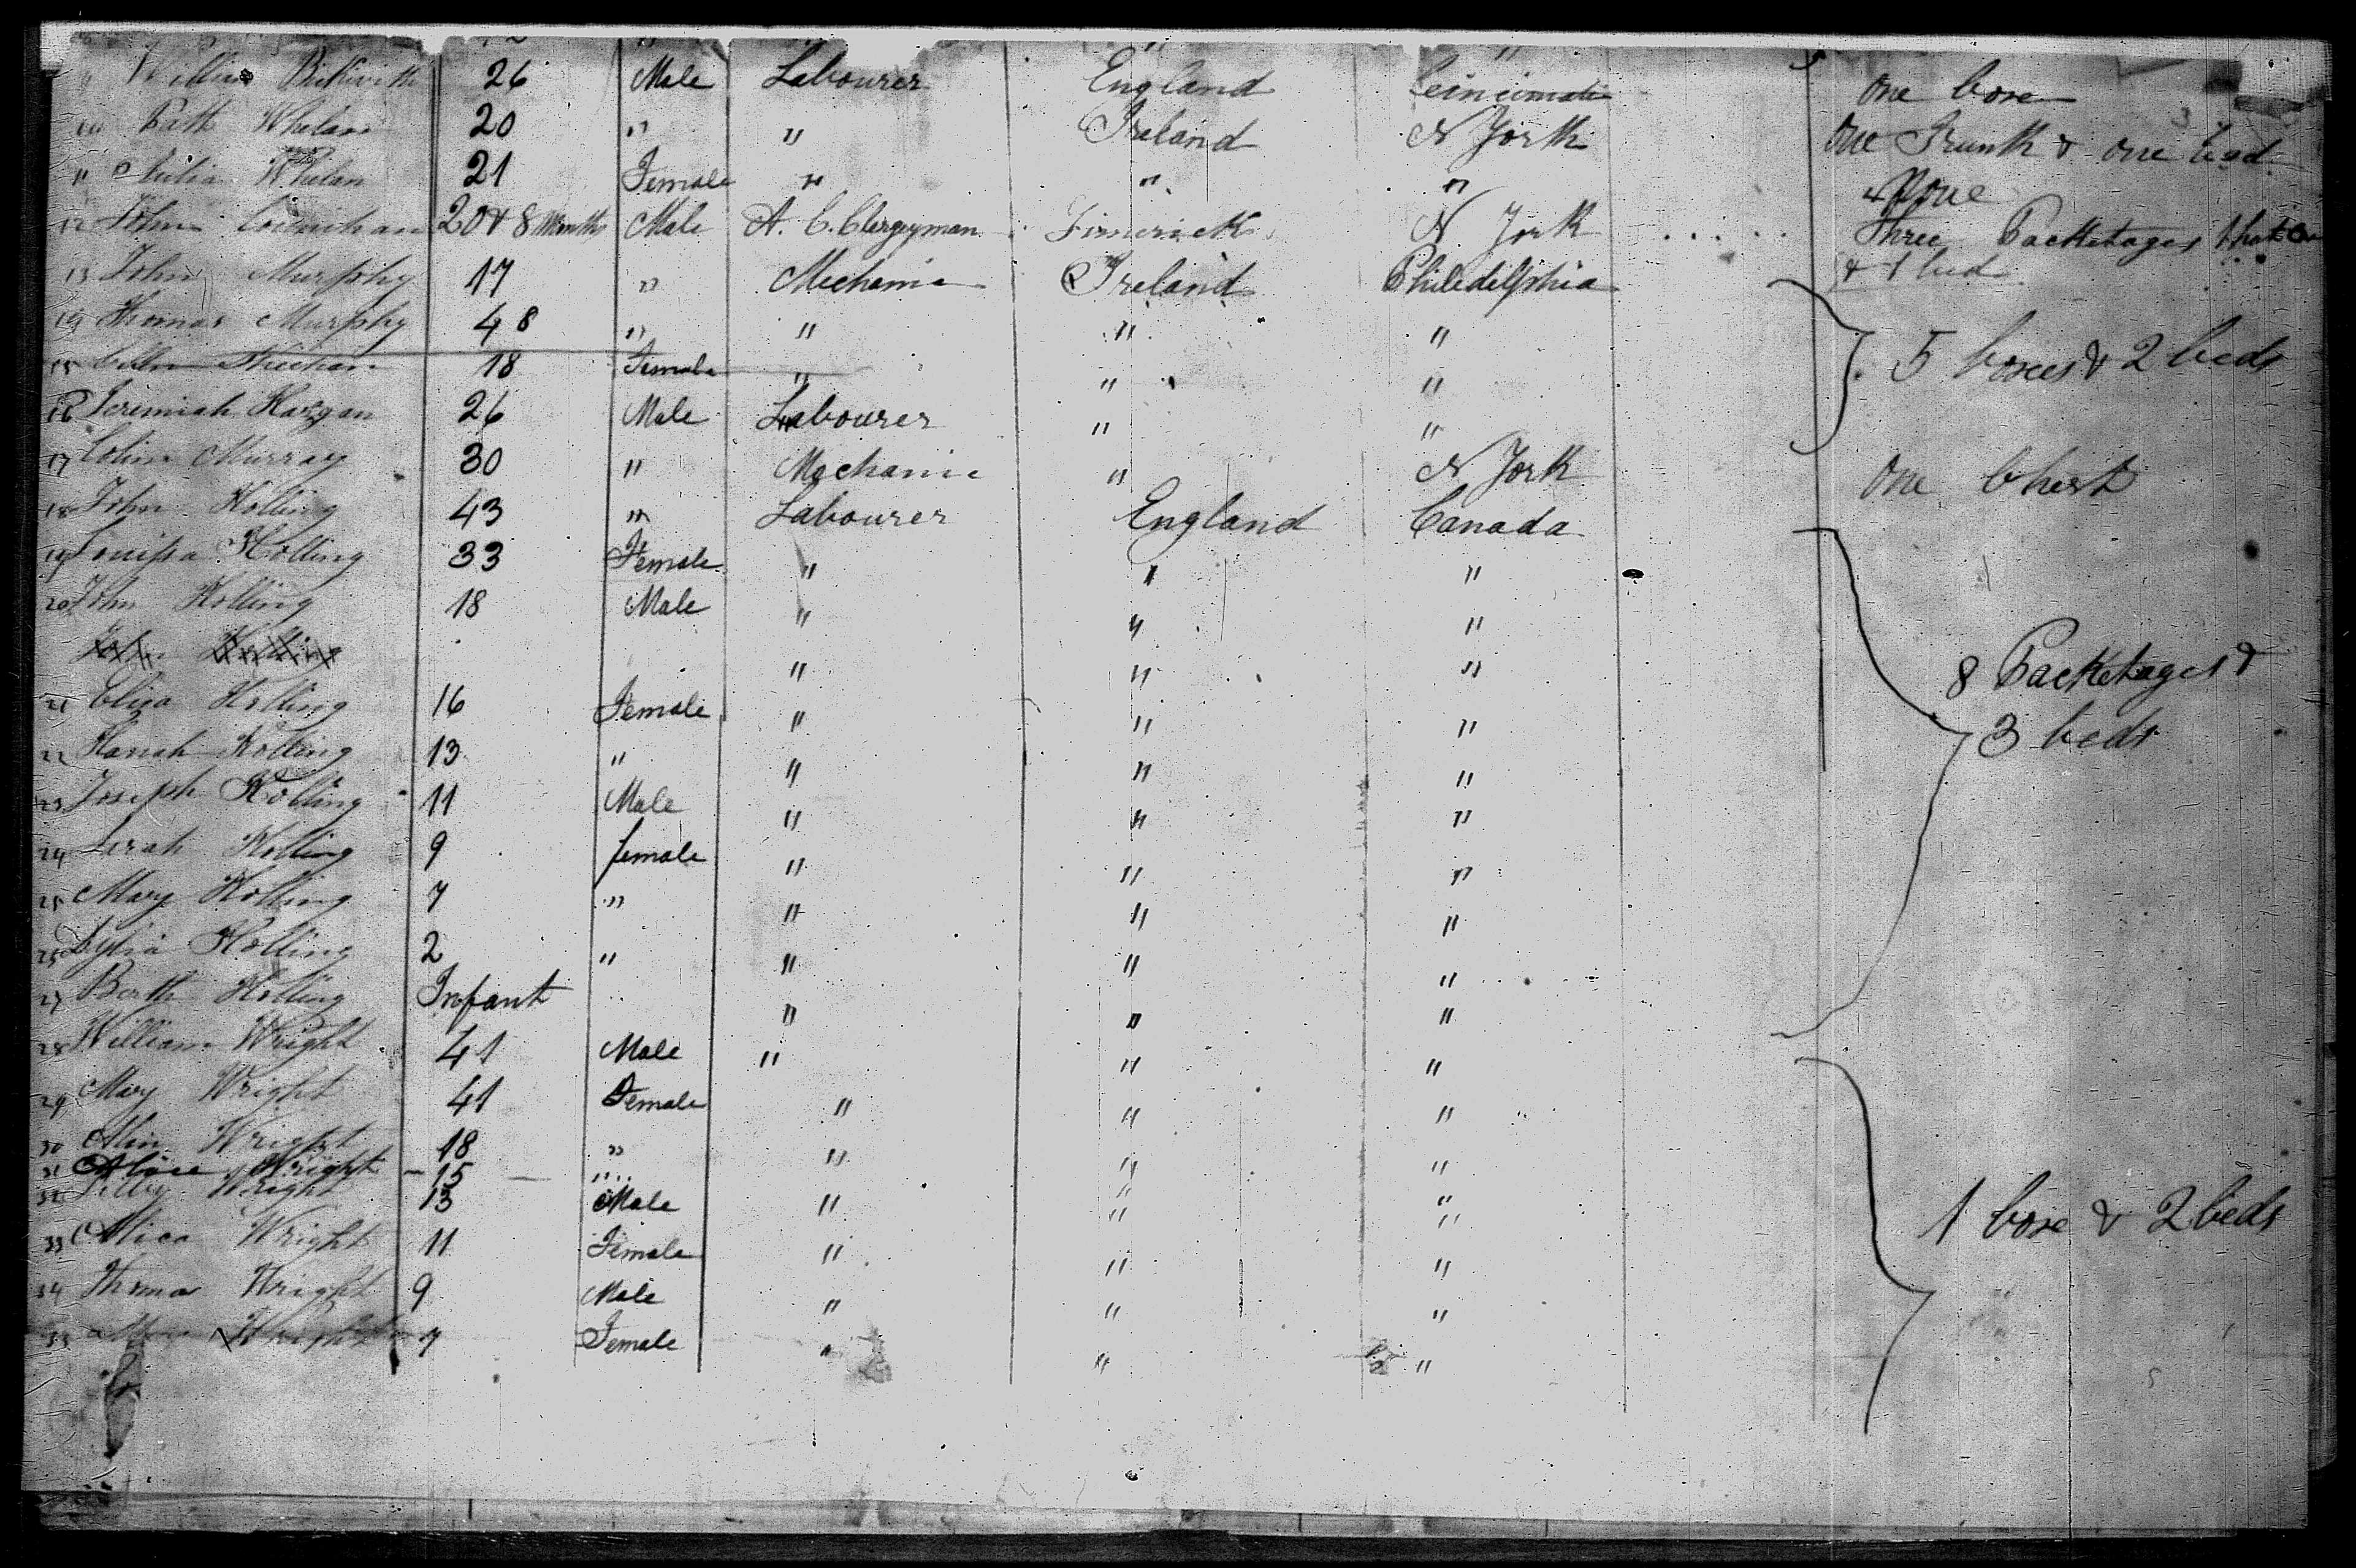 " "
William 26 Male Labourer England Cincinnati one boxe
10 Patk Whelan 20 " " Ireland N York one Trunk & one bed
11 Whelan 21 Female " " " None
12 John 20 & 8 Months Male A. C. Clergyman Limerick N York Three Packetages
& 1 bed
13 John Murphy 17 " Mechanic Ireland Philidelphia
14 Thomas Murphy 48 " " " " 5 boxes & 2 beds
15 Ellen Sheehan 18 Female " " "
16 Jeremiah Hargan 26 Male Labourer " "
17 Murray 30 " Mechanic " N York one Chest
18 John Holling 43 " Labourer England Canada
19 Louisa Holling 33 Female " " "
20 John Holling 18 Male " " "
John Holling " " " 8 Packetages &
21 Eliza Holling 16 Female " " " 3 beds
22 Hanah Holling 13 " " " "
23 Joseph Holling 11 Male " " "
24 Sarah Holling 9 female " " "
25 Mary Holling 7 " " " "
Lydia Holling 2 " " " "
27 Holling Infant " " "
28 William Wright 41 Male " " "
29 Mary Wright 41 Female " " "
30 Wright 18 " " " "
31 Wright 15 " " "
32 Wright 13 Male " " " 1 boxe & 2 beds
33 Alica Wright 11 Female " " "
34 Thomas Wright 9 Male " " "
35 Wright 7 Female " " "